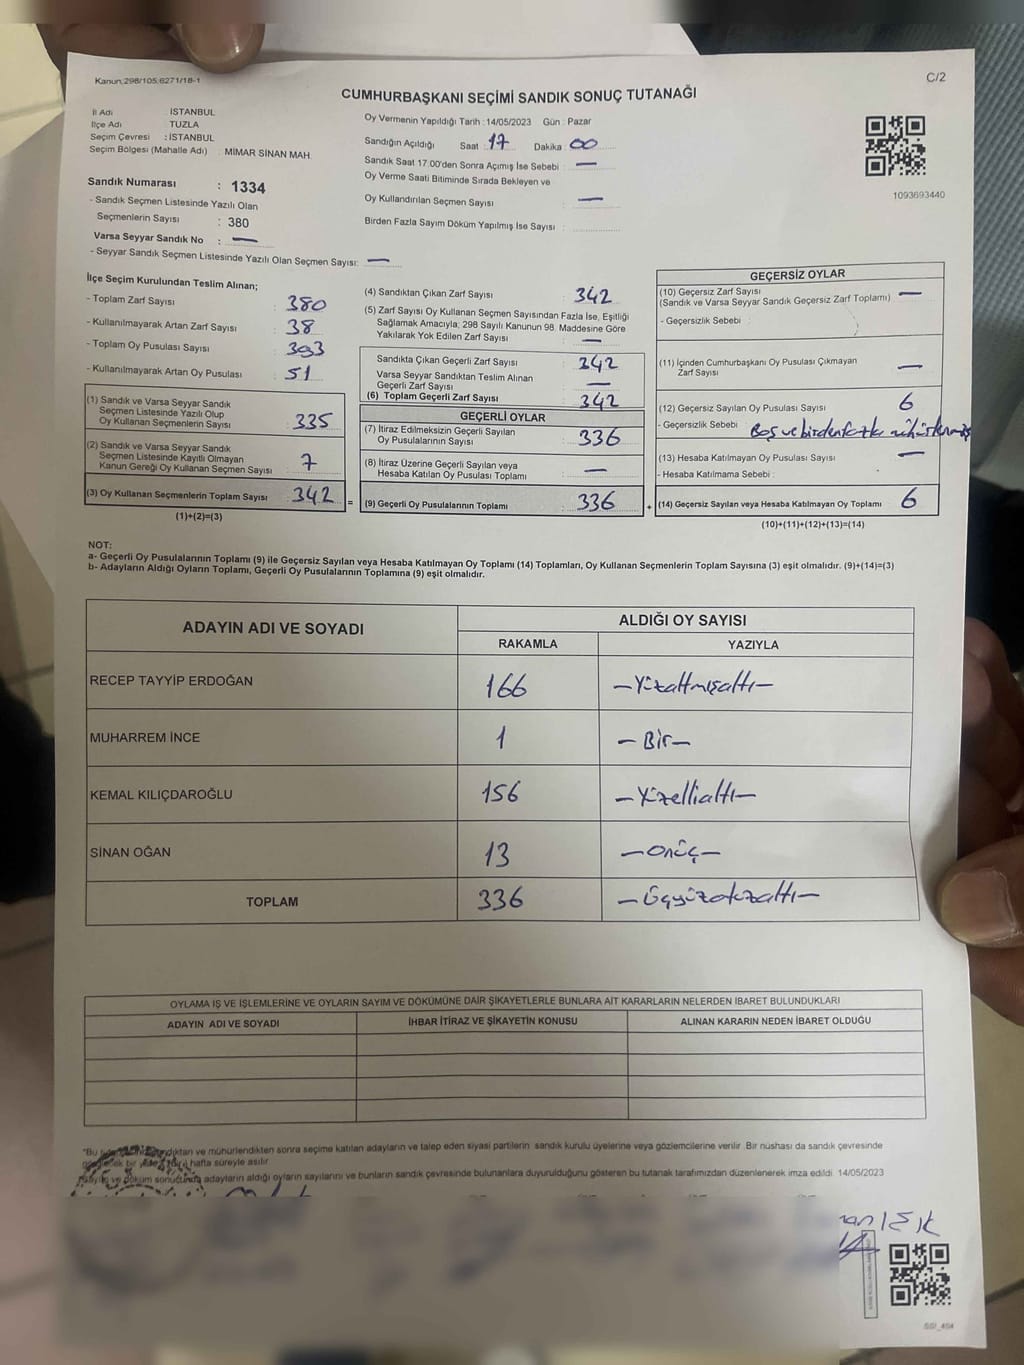 Kanun:298/105:6271/18-1
C/2
CUMHURBAŞKANI SEÇİMİ SANDIK SONUÇ TUTANAĞI
İl Adı : İSTANBUL
İlçe Adı : TUZLA
Seçim Çevresi : İSTANBUL
Seçim Bölgesi (Mahalle Adı) : MİMAR SİNAN MAH.
Oy Vermenin Yapıldığı Tarih : 14/05/2023 Gün : Pazar
Sandığın Açıldığı Saat : 17 Dakika : 00
Sandık Saat 17.00'den Sonra Açımış İse Sebebi : —
Oy Verme Saati Bitiminde Sırada Bekleyen ve
Oy Kullandırılan Seçmen Sayısı : —
Birden Fazla Sayım Döküm Yapılmış İse Sayısı :
1093693440
Sandık Numarası : 1334
- Sandık Seçmen Listesinde Yazılı Olan
Seçmenlerin Sayısı : 380
Varsa Seyyar Sandık No : —
- Seyyar Sandık Seçmen Listesinde Yazılı Olan Seçmen Sayısı: —
İlçe Seçim Kurulundan Teslim Alınan;
- Toplam Zarf Sayısı : 380
- Kullanılmayarak Artan Zarf Sayısı : 38
- Toplam Oy Pusulası Sayısı : 393
- Kullanılmayarak Artan Oy Pusulası : 51
(1) Sandık ve Varsa Seyyar Sandık
Seçmen Listesinde Yazılı Olup
Oy Kullanan Seçmenlerin Sayısı : 335
(2) Sandık ve Varsa Seyyar Sandık
Seçmen Listesinde Kayıtlı Olmayan
Kanun Gereği Oy Kullanan Seçmen Sayısı : 7
(3) Oy Kullanan Seçmenlerin Toplam Sayısı : 342 =
(1)+(2)=(3)
(4) Sandıktan Çıkan Zarf Sayısı : 342
(5) Zarf Sayısı Oy Kullanan Seçmen Sayısından Fazla İse, Eşitliği
Sağlamak Amacıyla; 298 Sayılı Kanunun 98. Maddesine Göre
Yakılarak Yok Edilen Zarf Sayısı : —
Sandıkta Çıkan Geçerli Zarf Sayısı : 342
Varsa Seyyar Sandıktan Teslim Alınan
Geçerli Zarf Sayısı : —
(6) Toplam Geçerli Zarf Sayısı : 342
GEÇERLİ OYLAR
(7) İtiraz Edilmeksizin Geçerli Sayılan
Oy Pusulalarının Sayısı : 336
(8) İtiraz Üzerine Geçerli Sayılan veya
Hesaba Katılan Oy Pusulası Toplamı : —
(9) Geçerli Oy Pusulalarının Toplamı : 336 +
GEÇERSİZ OYLAR
(10) Geçersiz Zarf Sayısı
(Sandık ve Varsa Seyyar Sandık Geçersiz Zarf Toplamı) : —
- Geçersizlik Sebebi :
(11) İçinden Cumhurbaşkanı Oy Pusulası Çıkmayan
Zarf Sayısı : —
(12) Geçersiz Sayılan Oy Pusulası Sayısı : 6
- Geçersizlik Sebebi : Boş ve birden fazla mühürlenmiş
(13) Hesaba Katılmayan Oy Pusulası Sayısı : —
- Hesaba Katılmama Sebebi :
(14) Geçersiz Sayılan veya Hesaba Katılmayan Oy Toplamı : 6
(10)+(11)+(12)+(13)=(14)
NOT:
a- Geçerli Oy Pusulalarının Toplamı (9) ile Geçersiz Sayılan veya Hesaba Katılmayan Oy Toplamı (14) Toplamları, Oy Kullanan Seçmenlerin Toplam Sayısına (3) eşit olmalıdır. (9)+(14)=(3)
b- Adayların Aldığı Oyların Toplamı, Geçerli Oy Pusulalarının Toplamına (9) eşit olmalıdır.
ADAYIN ADI VE SOYADI
ALDIĞI OY SAYISI
RAKAMLA YAZIYLA
RECEP TAYYİP ERDOĞAN 166 —Yüzaltmışaltı—
MUHARREM İNCE 1 —Bir—
KEMAL KILIÇDAROĞLU 156 —Yüzellialtı—
SİNAN OĞAN 13 —Onüç—
TOPLAM 336 —Üçyüzotuzaltı—
OYLAMA İŞ VE İŞLEMLERİNE VE OYLARIN SAYIM VE DÖKÜMÜNE DAİR ŞİKAYETLERLE BUNLARA AİT KARARLARIN NELERDEN İBARET BULUNDUKLARI
ADAYIN ADI VE SOYADI İHBAR İTİRAZ VE ŞİKAYETİN KONUSU ALINAN KARARIN NEDEN İBARET OLDUĞU
"Bu mühürlendikten sonra seçime katılan adayların ve talep eden siyasi partilerin sandık kurulu üyelerine veya gözlemcilerine verilir. Bir nüshası da sandık çevresinde
bir hafta süreyle asılır.
Sayım ve döküm sonucunda adayların aldığı oyların sayılarını ve bunların sandık çevresinde bulunanlara duyurulduğunu gösteren bu tutanak tarafımızdan düzenlenerek imza edildi. 14/05/2023
IŞIK